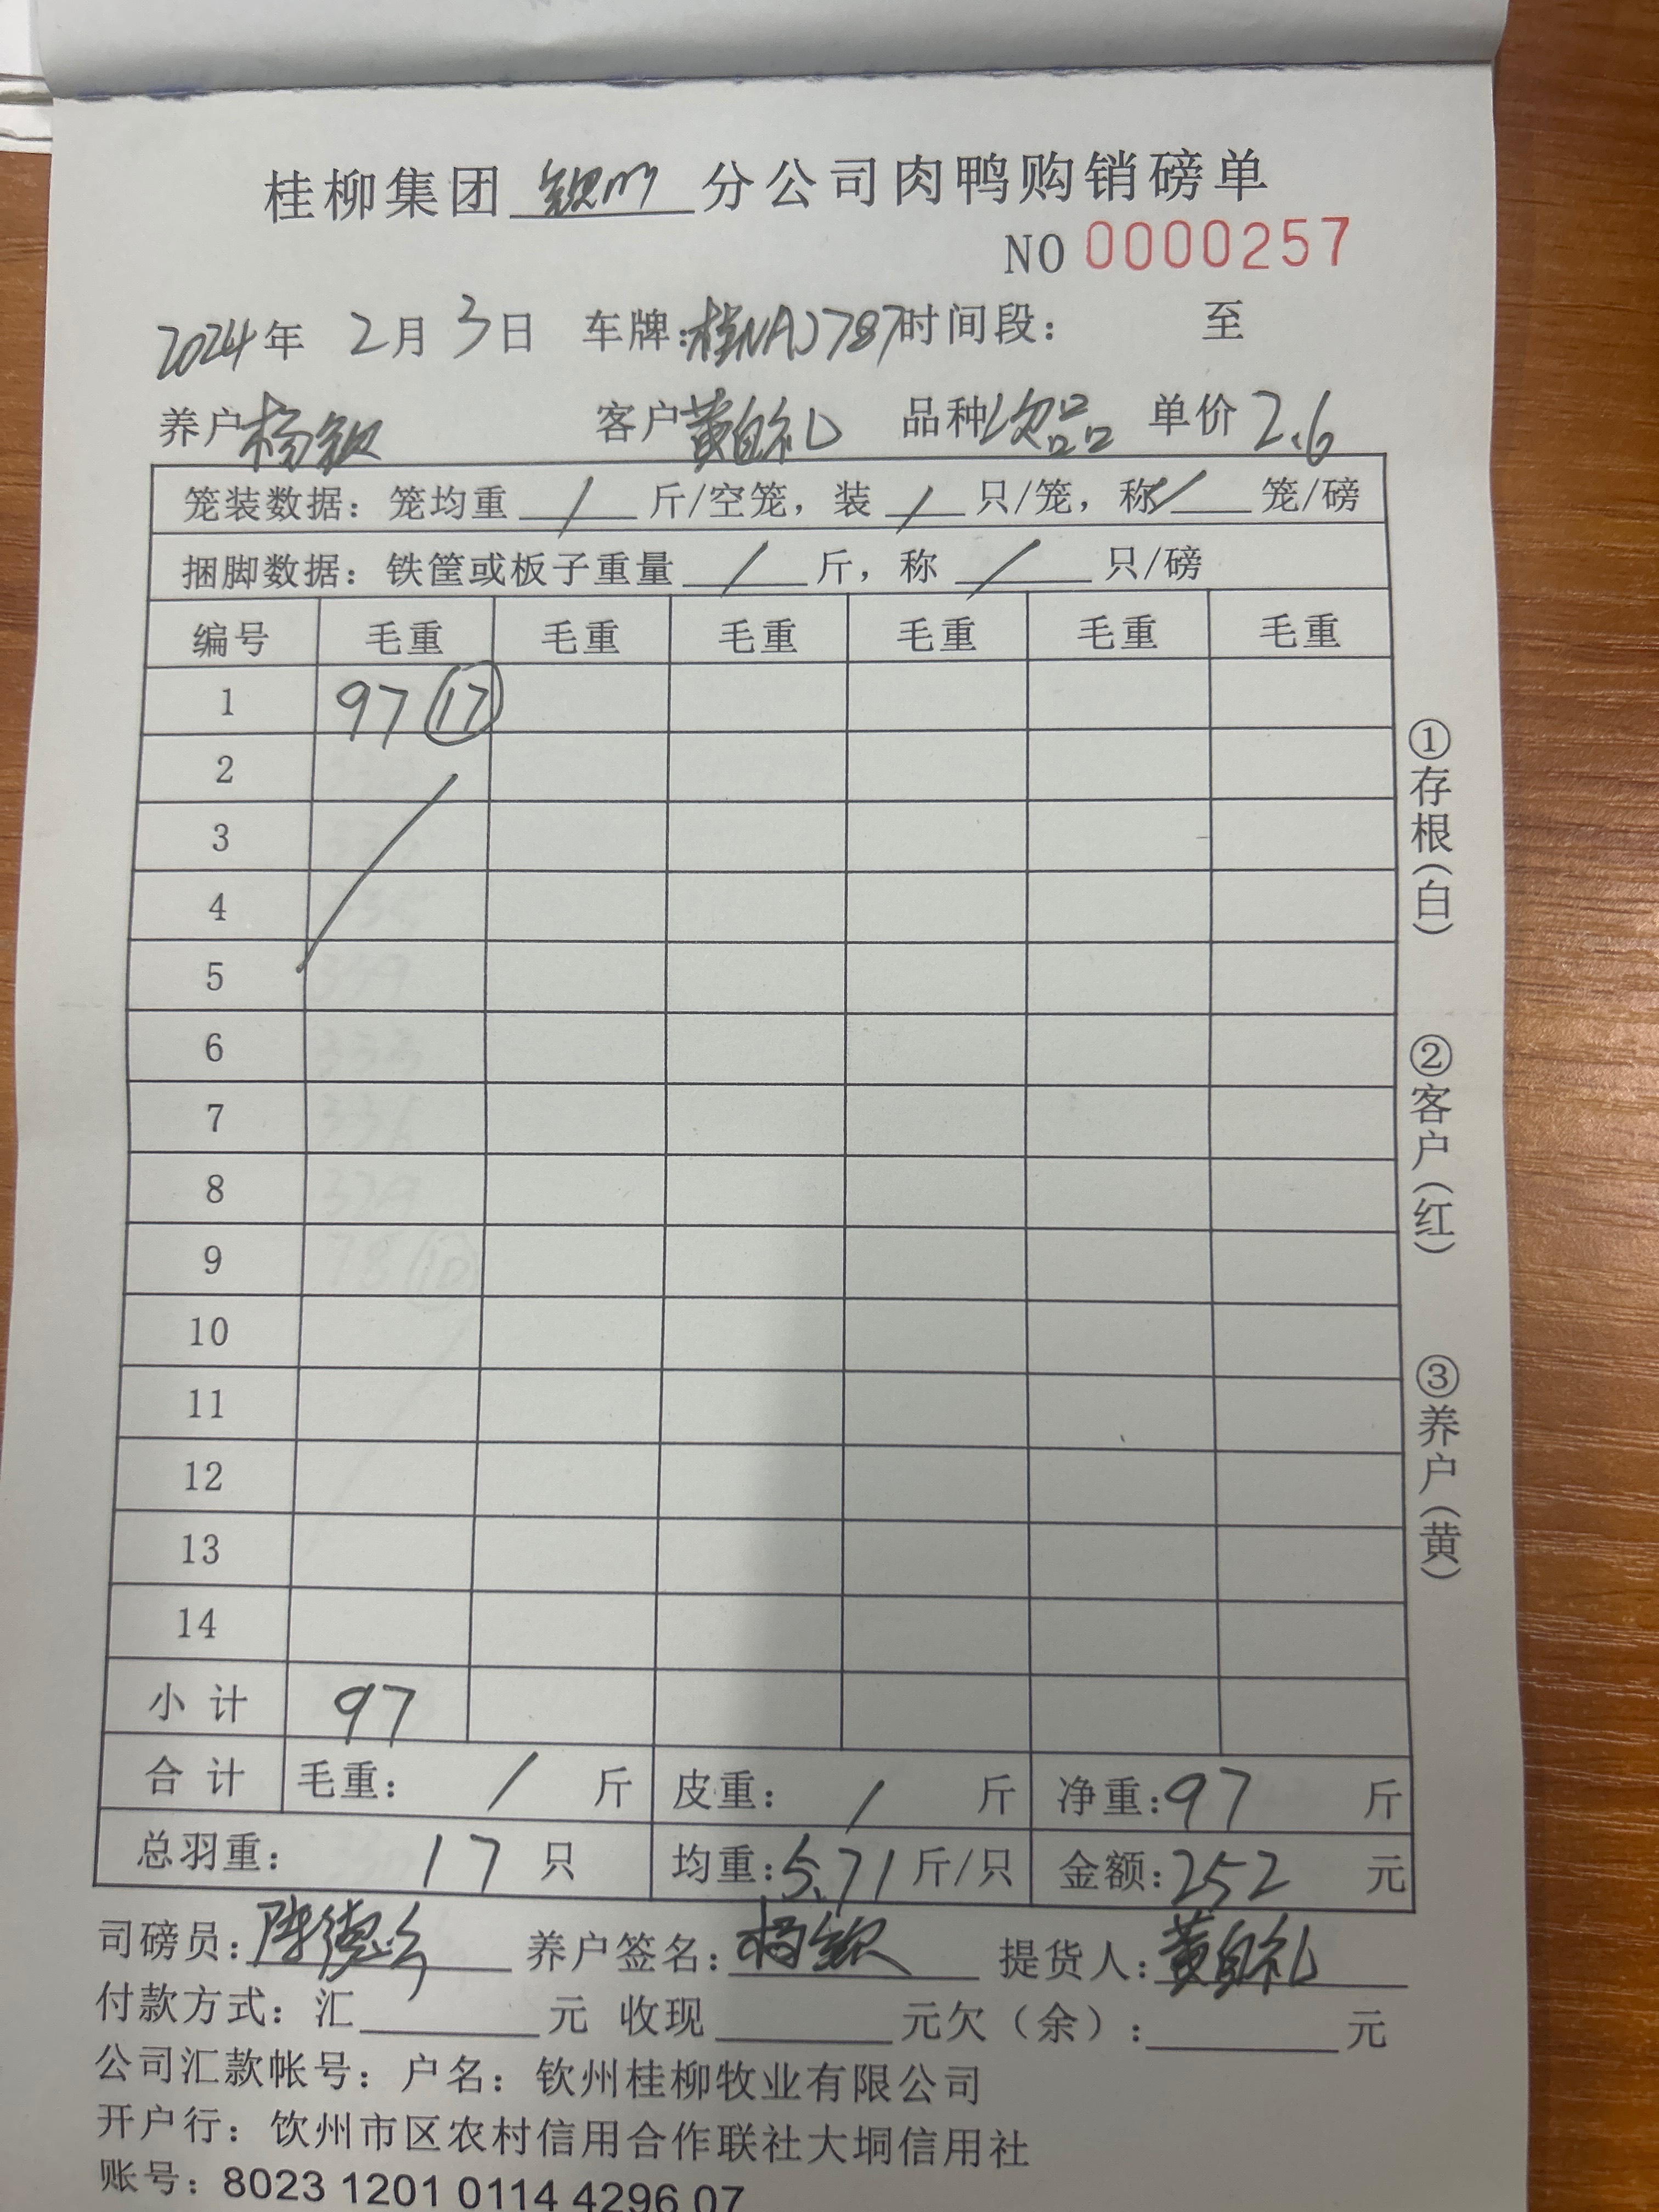 桂柳集团 钦州 分公司肉鸭购销磅单
NO 0000257
2024年 2月 3日 车牌:桂NAJ787 时间段: 至
养户 杨钦 客户 黄自礼 品种 次品 单价 2.6
笼装数据: 笼均重 / 斤/空笼, 装 / 只/笼, 称 / 笼/磅
捆脚数据: 铁筐或板子重量 / 斤, 称 / 只/磅
编号 毛重 毛重 毛重 毛重 毛重 毛重
1 97 ⑰
2
3
4
5
6
7
8
9
10
11
12
13
14
小计 97
合计 毛重: / 斤 皮重: / 斤 净重:97 斤
总羽重: 17 只 均重:5.71 斤/只 金额:252 元
司磅员: 陈德 养户签名: 杨钦 提货人: 黄自礼
付款方式: 汇 元 收现 元欠(余): 元
公司汇款帐号: 户名: 钦州桂柳牧业有限公司
开户行: 钦州市区农村信用合作联社大垌信用社
账号: 8023 1201 0114 4296 07
①存根(白)
②客户(红)
③养户(黄)